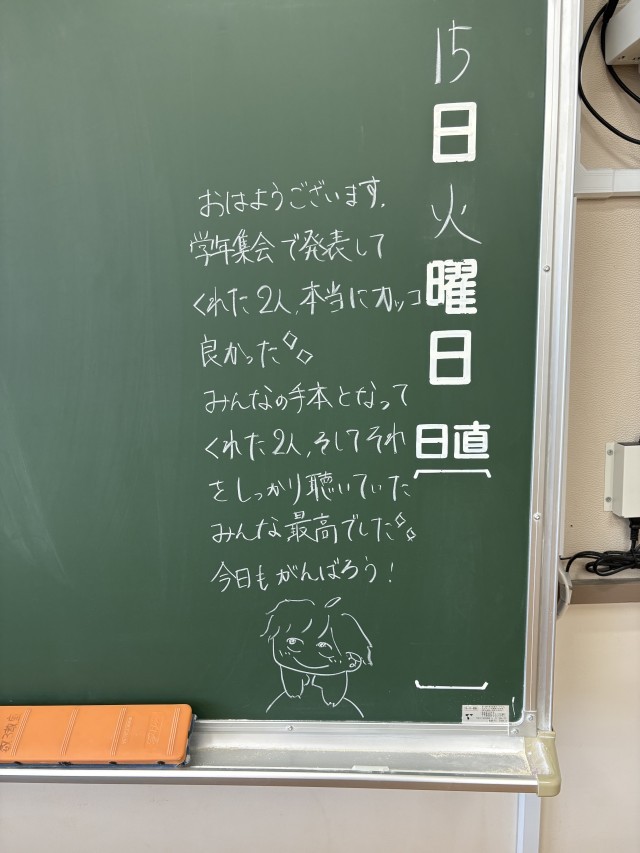 15
日
火
曜
日
日直
おはようございます.
学年集会で発表して
くれた2人,本当にカッコ
良かった
みんなの手本となって
くれた2人,そしてそれ
をしっかり聴いていた
みんな最高でした
今日もがんばろう!